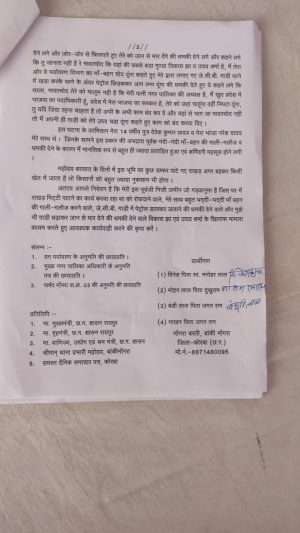 //2//
देने लगे और जोर-जोर से चिल्लाते हुए तेरे को जान से मार देंगे की धमकी देने लगे और कहने लगे
कि तु जानता नहीं है रे मादरचोद कि यहां की सबसे बड़ा गुण्डा विकास झा व उदय शर्मा है, में तेरा
और से पर्यावरण विभाग का माँ-बहन चोद दूंगा कहते हुए मेरे द्वारा लगाए गए जे.सी.बी. गाड़ी थाने
में खड़ा करके थाने के अंदर पेट्रोल छिड़ककर आग लगा दूंगा की धमकी देते हुए व कहने लगे कि
साला, मादरचोद तेरे को मालूम नहीं है कि मेरी पत्नी नगर पालिका की अध्यक्ष है, में खुद प्रदेश में
भाजपा का पदाधिकारी हूँ, प्रदेश में मेरा भाजपा का सरकार है, तेरे को जहां पाउंगा वहीं निपटा दूंगा,
तु यदि जिंदा रहना चाहता है तो अभी के अभी काम बंद कर दे और यहां से भाग जा मादरचोद नहीं
तो में अपनी ही गाड़ी को तेरे उपर चढ़ा दूंगा कहते हुए काम को बंद करवा दिए।
इस घटना के दरमियान मेरा 14 वर्षीय पुत्र देवेश कुमार यादव व मेरा भांजा नरेश यादव
मेरे साथ थे। जिनके सामने इस प्रकार की अभद्रता पूर्वक गंदी-गंदी माँ-बहन की गाली-गलौज व
धमकी देने के कारण में मानसिक रुप से बहुत ही ज्यादा प्रताड़ित हुआ एवं शर्मिंदगी महसूस होने लगी
।
महोदय बरसात के दिनों में इस भूमि पर कुछ डम्फर पाटे गए राखड़ अगर बहकर किसी
खेत में जाता है तो किसानों को बहुत ज्यादा नुकसान भी होगा।
अतएव आपसे निवेदन है कि मेरी इस पूर्वजी निजी जमीन जो गड्ढानुमा है जिस पर में
राखड़ मिट्टी पाटने का कार्य करवा रहा था को रोकवाने वाले, मेरे साथ बहुत भद्दी-भद्दी माँ बहन
की गाली-गलौज करने वाले, जे.सी.बी. गाड़ी में पेट्रोल डालकर जलाने की धमकी देने वाले और मुझे
भी गाड़ी चढ़ाकर जान से मार देने की धमकी देने वाले विकास झा एवं उदय शर्मा के खिलाफ मामला
कायम करते हुए आवश्यक कार्यवाही करने की कृपा करें।
संलग्न :-
1. वन पर्यावरण के अनुमति की छायाप्रति।
2. मुख्य नगर पालिका अधिकारी के अनुमति
पत्र की छायाप्रति।
3. पार्षद मोंगरा वा.क्रं. 03 की अनुमति की छायाप्रति
प्रार्थीगण
(1) दिनेश पिता स्व. मनोहर लाल
(2) मोहन लाल पिता दुखुराम
(3) बंशी लाल पिता जगत राम
(4) माखन पिता जगत राम
मोंगरा बस्ती, बांकी मोंगरा
जिला-कोरबा (छ.ग.)
मो.नं.-8871480095
प्रतिलिपि :-
1. मा. मुख्यमंत्री, छ.ग. शासन रायपुर
2. मा. गृहमंत्री, छ.ग. शासन रायपुर
3. मा. वाणिज्य, उद्योग एवं श्रम मंत्री, छ.ग. शासन
4. श्रीमान् थाना प्रभारी महोदय, बांकीमोंगरा
5. समस्त दैनिक समाचार पत्र, कोरबा